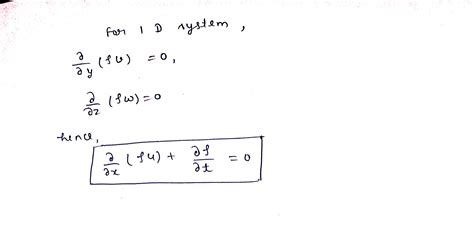 For 1 D system,
∂/∂y (ρv) = 0,
∂/∂z (ρw) = 0
hence,
∂/∂x (ρu) + ∂ρ/∂t = 0